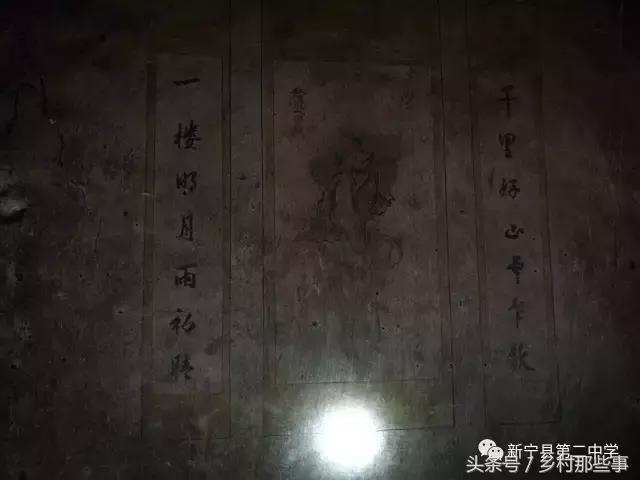 千里好山雲乍斂
一楼明月雨初晴
新宁县第二中学
头条号/乡村那些事